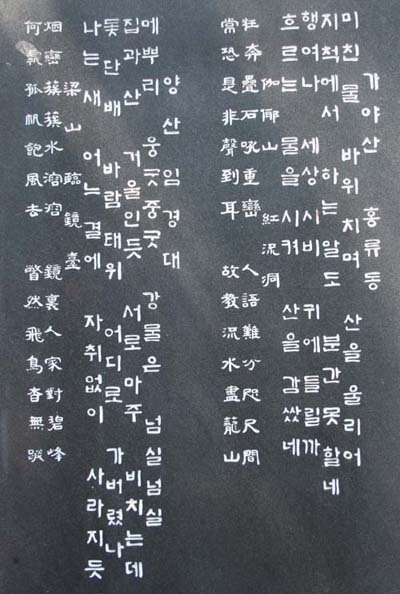 가야산 홍류동
미친 물 바위 치며 산을 울리어
지척에서 하는 말도 분간 못할네
행여나 세상 시비 귀에 들릴까
흐르는 물을 시켜 산을 감쌌네
伽倻山 紅流洞
狂奔疊石吼重巒 人語難分咫尺間
常恐是非聲到耳 故教流水盡籠山
양산 임경대
메뿌리 웅긋중긋 강물은 넘실넘실
집과 산 거울인듯 서로 마주 비치는데
돛단배 바람 태워 어디로 가버렸나
나는 새 어느 결에 자취없이 사라지듯
梁山 臨鏡臺
烟巒簇簇水溶溶 鏡裏人家對碧峰
何處孤帆飽風去 瞥然飛鳥杳無蹤